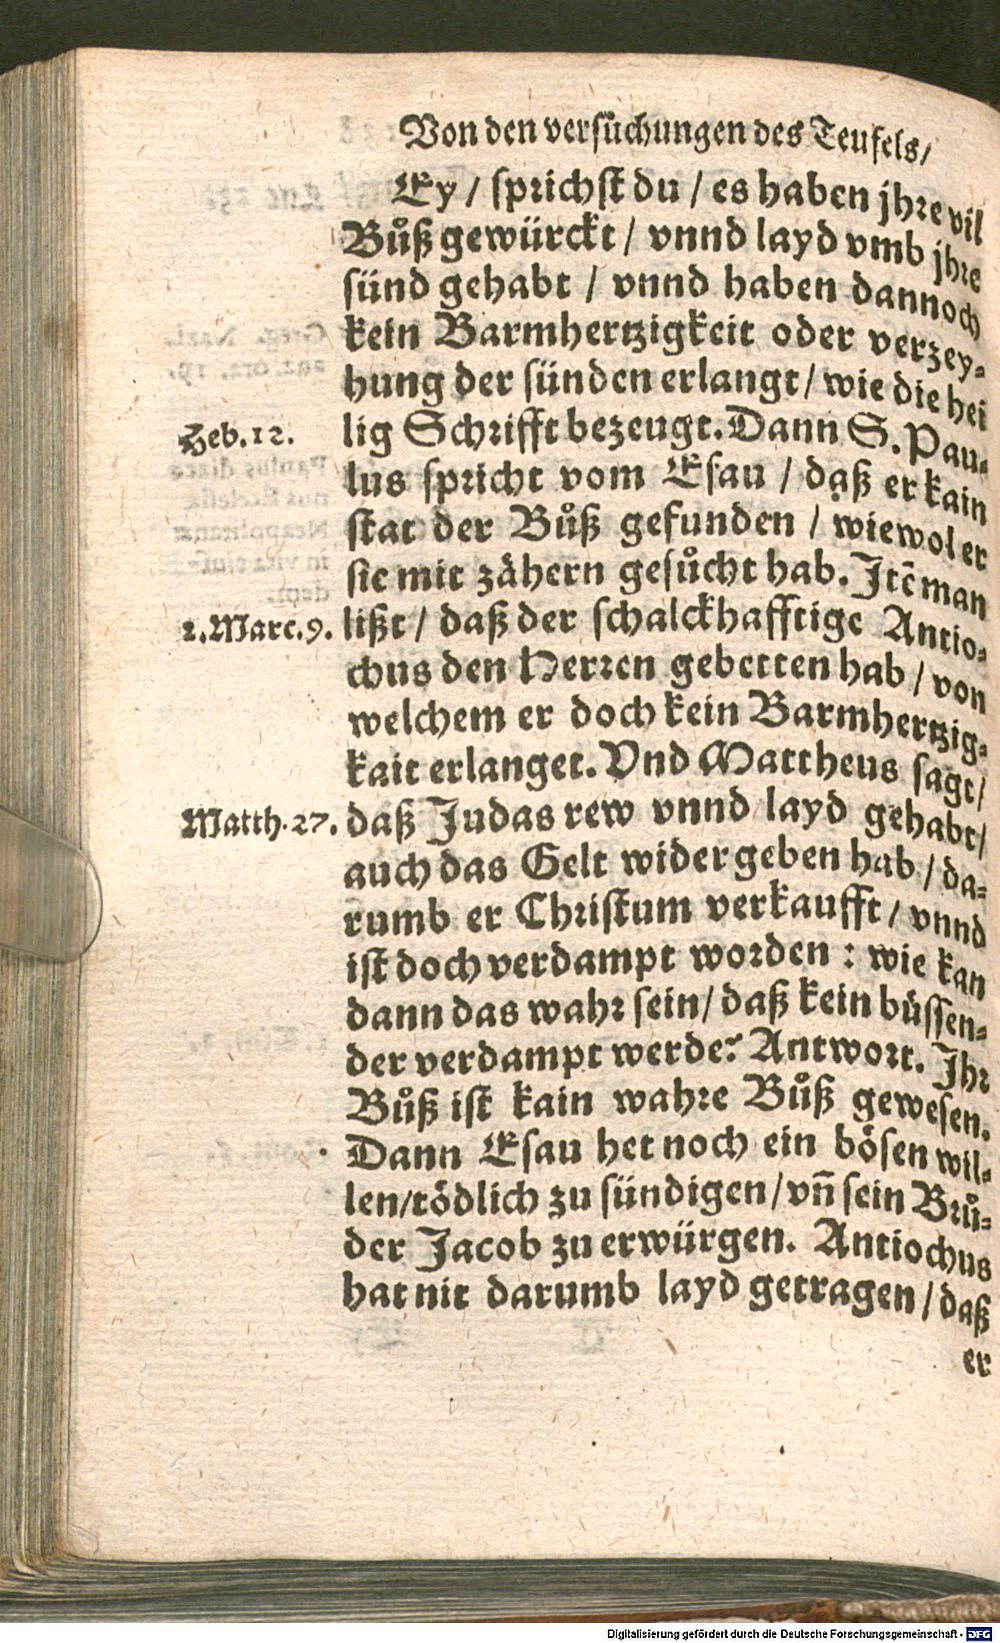 Von den versůchungen des Teufels/
Ey / sprichst du / es haben jhre vil
Bůß gewürckt / vnnd layd vmb jhre
sünd gehabt / vnnd haben dannoch
kein Barmhertzigkeit oder verzey-
hung der sünden erlangt / wie die hei
Heb. 12. lig Schrifft bezeugt. Dann S. Pau-
lus spricht vom Esau / daß er kain
stat der Bůß gefunden / wiewol er
sie mit zähern gesůcht hab. Itē man
2. Marc. 9. lißt / daß der schalckhafftige Antio-
chus den Herren gebetten hab / von
welchem er doch kein Barmhertzig-
kait erlanget. Vnd Mattheus sagt /
Matth. 27. daß Judas rew vnnd layd gehabt /
auch das Gelt wider geben hab / da-
rumb er Christum verkaufft / vnnd
ist doch verdampt worden : wie kan
dann das wahr sein / daß kein büssen-
der verdampt werde? Antwort. Ihr
Bůß ist kain wahre Bůß gewesen.
Dann Esau het noch ein bösen wil-
len / tödlich zu sündigen / vñ sein Brů-
der Jacob zu erwürgen. Antiochus
hat nit darumb layd getragen / daß
er
Digitalisierung gefördert durch die Deutsche Forschungsgemeinschaft - DFG